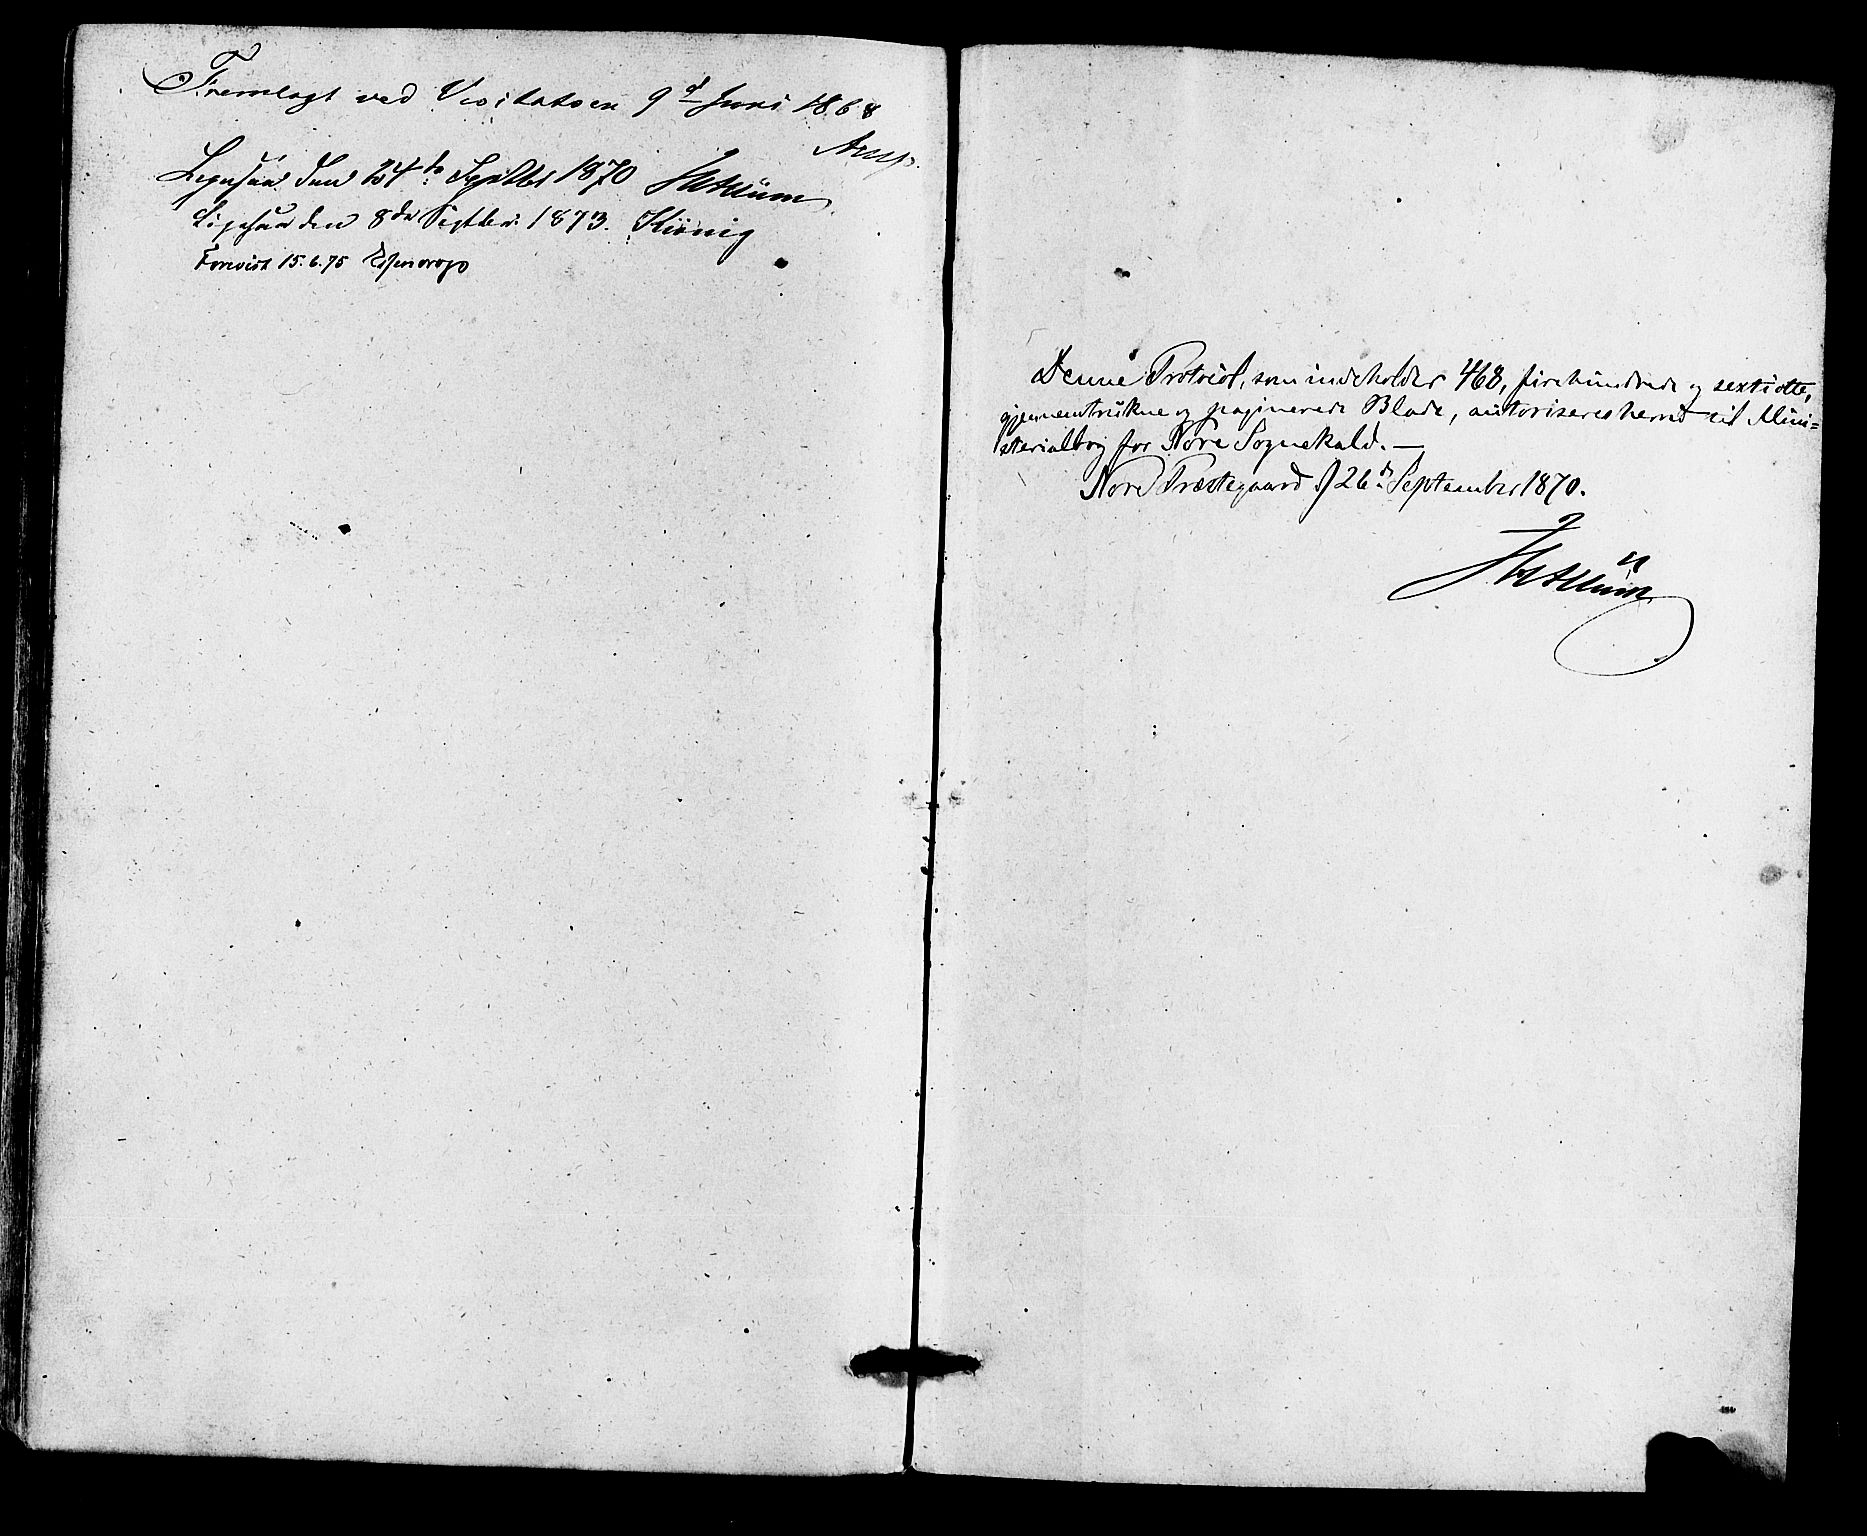 Fremlagt ved Visitatsen 9d Juni 1868
Arup.
Ligesaa den 24de Septbr 1870
Ligesaa den 8de Septbr. 1873. König
Forevist 15.6.75
Denne Protocol, som indeholder 468, firehundrede og sextiotte,
gjennemtrukne og paginerede Blade, autoriseres herved til Mini=
sterialbog for Nore Sognekald. —
Nore Præstegaard d 26de September 1870.